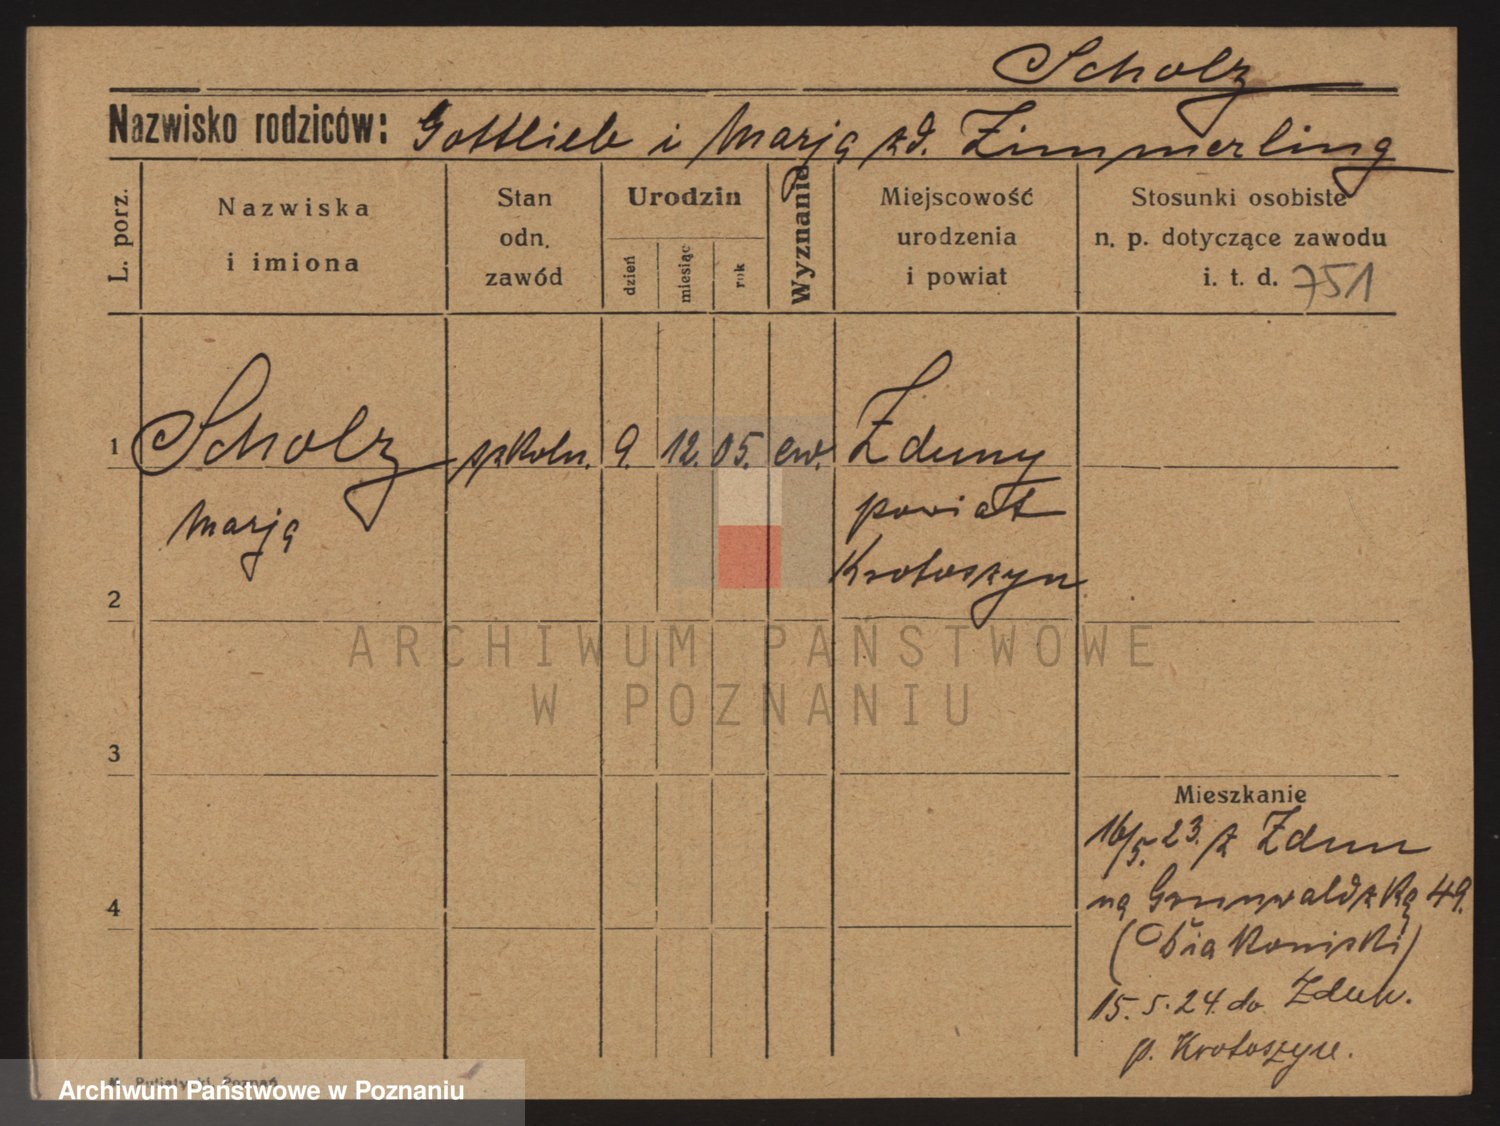 Scholz
Nazwisko rodziców: Gottlieb i Marja zd. Zimmerling
L. porz.
Nazwiska
i imiona
Stan
odn.
zawód
Urodzin
dzień
miesiąc
rok
Wyznanie
Miejscowość
urodzenia
i powiat
Stosunki osobiste
n. p. dotyczące zawodu
i. t. d. 751
1 Scholz szkoln. 9. 12. 05. ew. Zduny
Marja
powiat
Krotoszyn
2
ARCHIWUM PAŃSTWOWE
W POZNANIU
3
Mieszkanie
16/5. 23. z Zdun
na Grunwaldzką 49.
4
15. 5. 24. do Zdun.
p. Krotoszyn.
Poznań
Archiwum Państwowe w Poznaniu